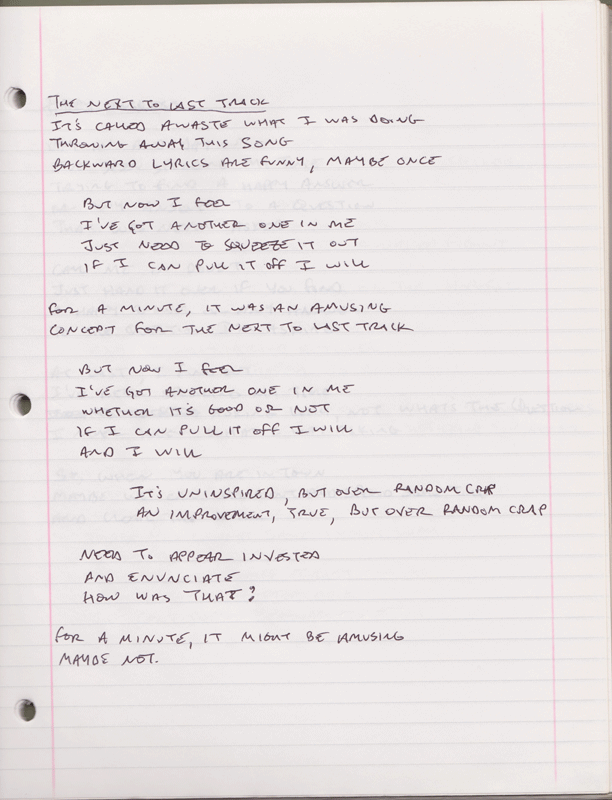 THE NEXT TO LAST TRACK
IT'S CALLED A WASTE WHAT I WAS DOING
THROWING AWAY THIS SONG
BACKWARD LYRICS ARE FUNNY, MAYBE ONCE
BUT NOW I FEEL
I'VE GOT ANOTHER ONE IN ME
JUST NEED TO SQUEEZE IT OUT
IF I CAN PULL IT OFF I WILL
FOR A MINUTE, IT WAS AN AMUSING
CONCEPT FOR THE NEXT TO LAST TRACK
BUT NOW I FEEL
I'VE GOT ANOTHER ONE IN ME
WHETHER IT'S GOOD OR NOT
IF I CAN PULL IT OFF I WILL
AND I WILL
IT'S UNINSPIRED, BUT OVER RANDOM CRAP
AN IMPROVEMENT, TRUE, BUT OVER RANDOM CRAP
NEED TO APPEAR INVESTED
AND ENUNCIATE
HOW WAS THAT?
FOR A MINUTE, IT MIGHT BE AMUSING
MAYBE NOT.